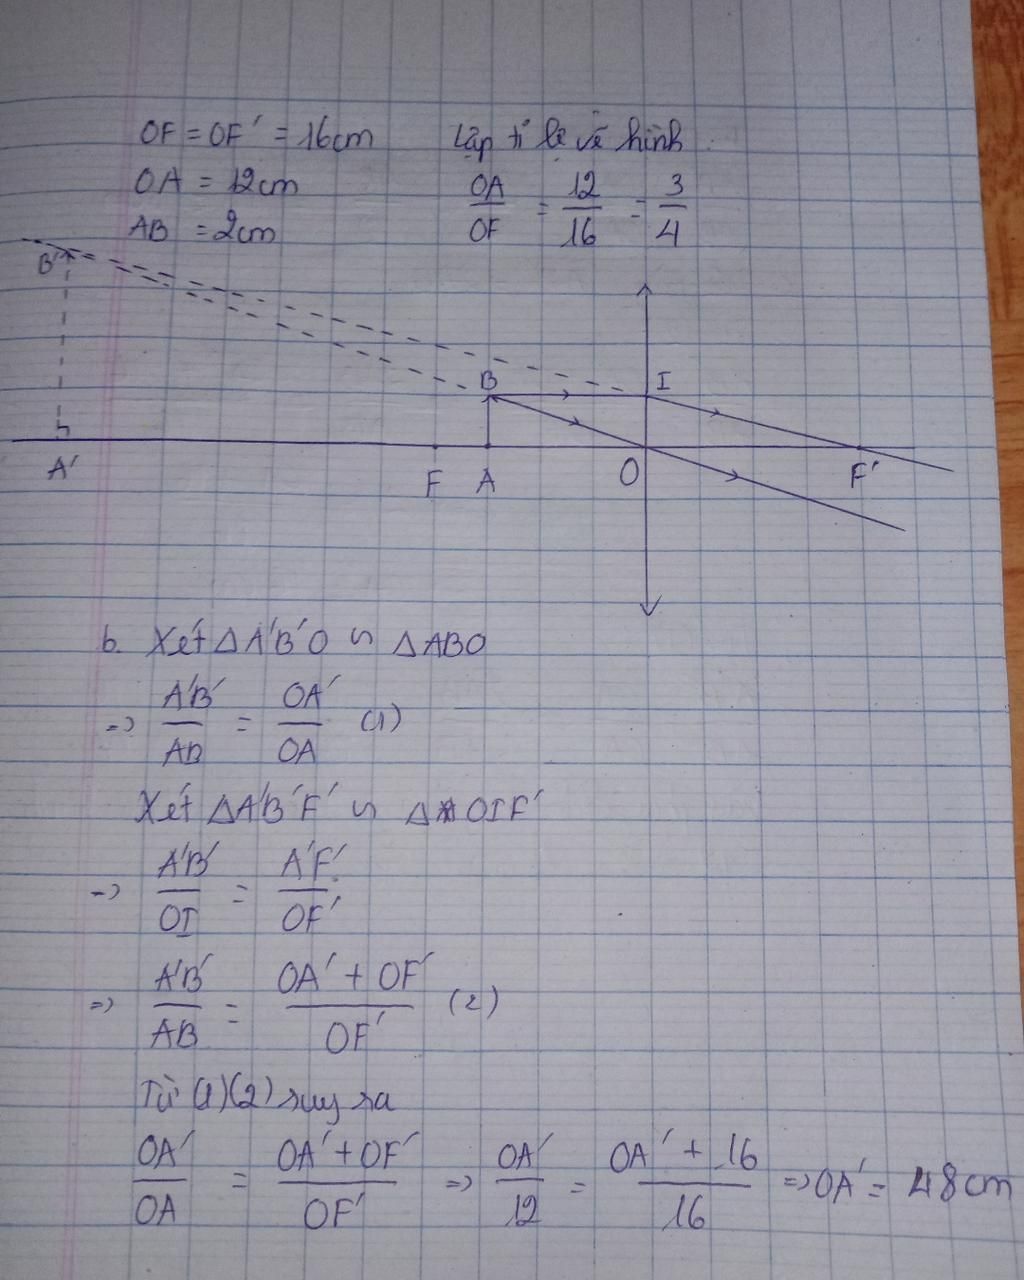 OF = OF' = 16cm Lập tỉ lệ vẽ hình.
OA = 12cm OA/OF = 12/16 = 3/4
AB = 2cm
B'
B I
A' F A O F'
b. Xét ΔA'B'O ∽ ΔABO
=> A'B'/AB = OA'/OA (1)
Xét ΔA'B'F' ∽ ΔOIF'
=> A'B'/OI = A'F'/OF'
=> A'B'/AB = OA' + OF'/OF' (2)
Từ (1)(2) suy ra
OA'/OA = OA' + OF'/OF' => OA'/12 = OA' + 16/16 => OA' = 48cm